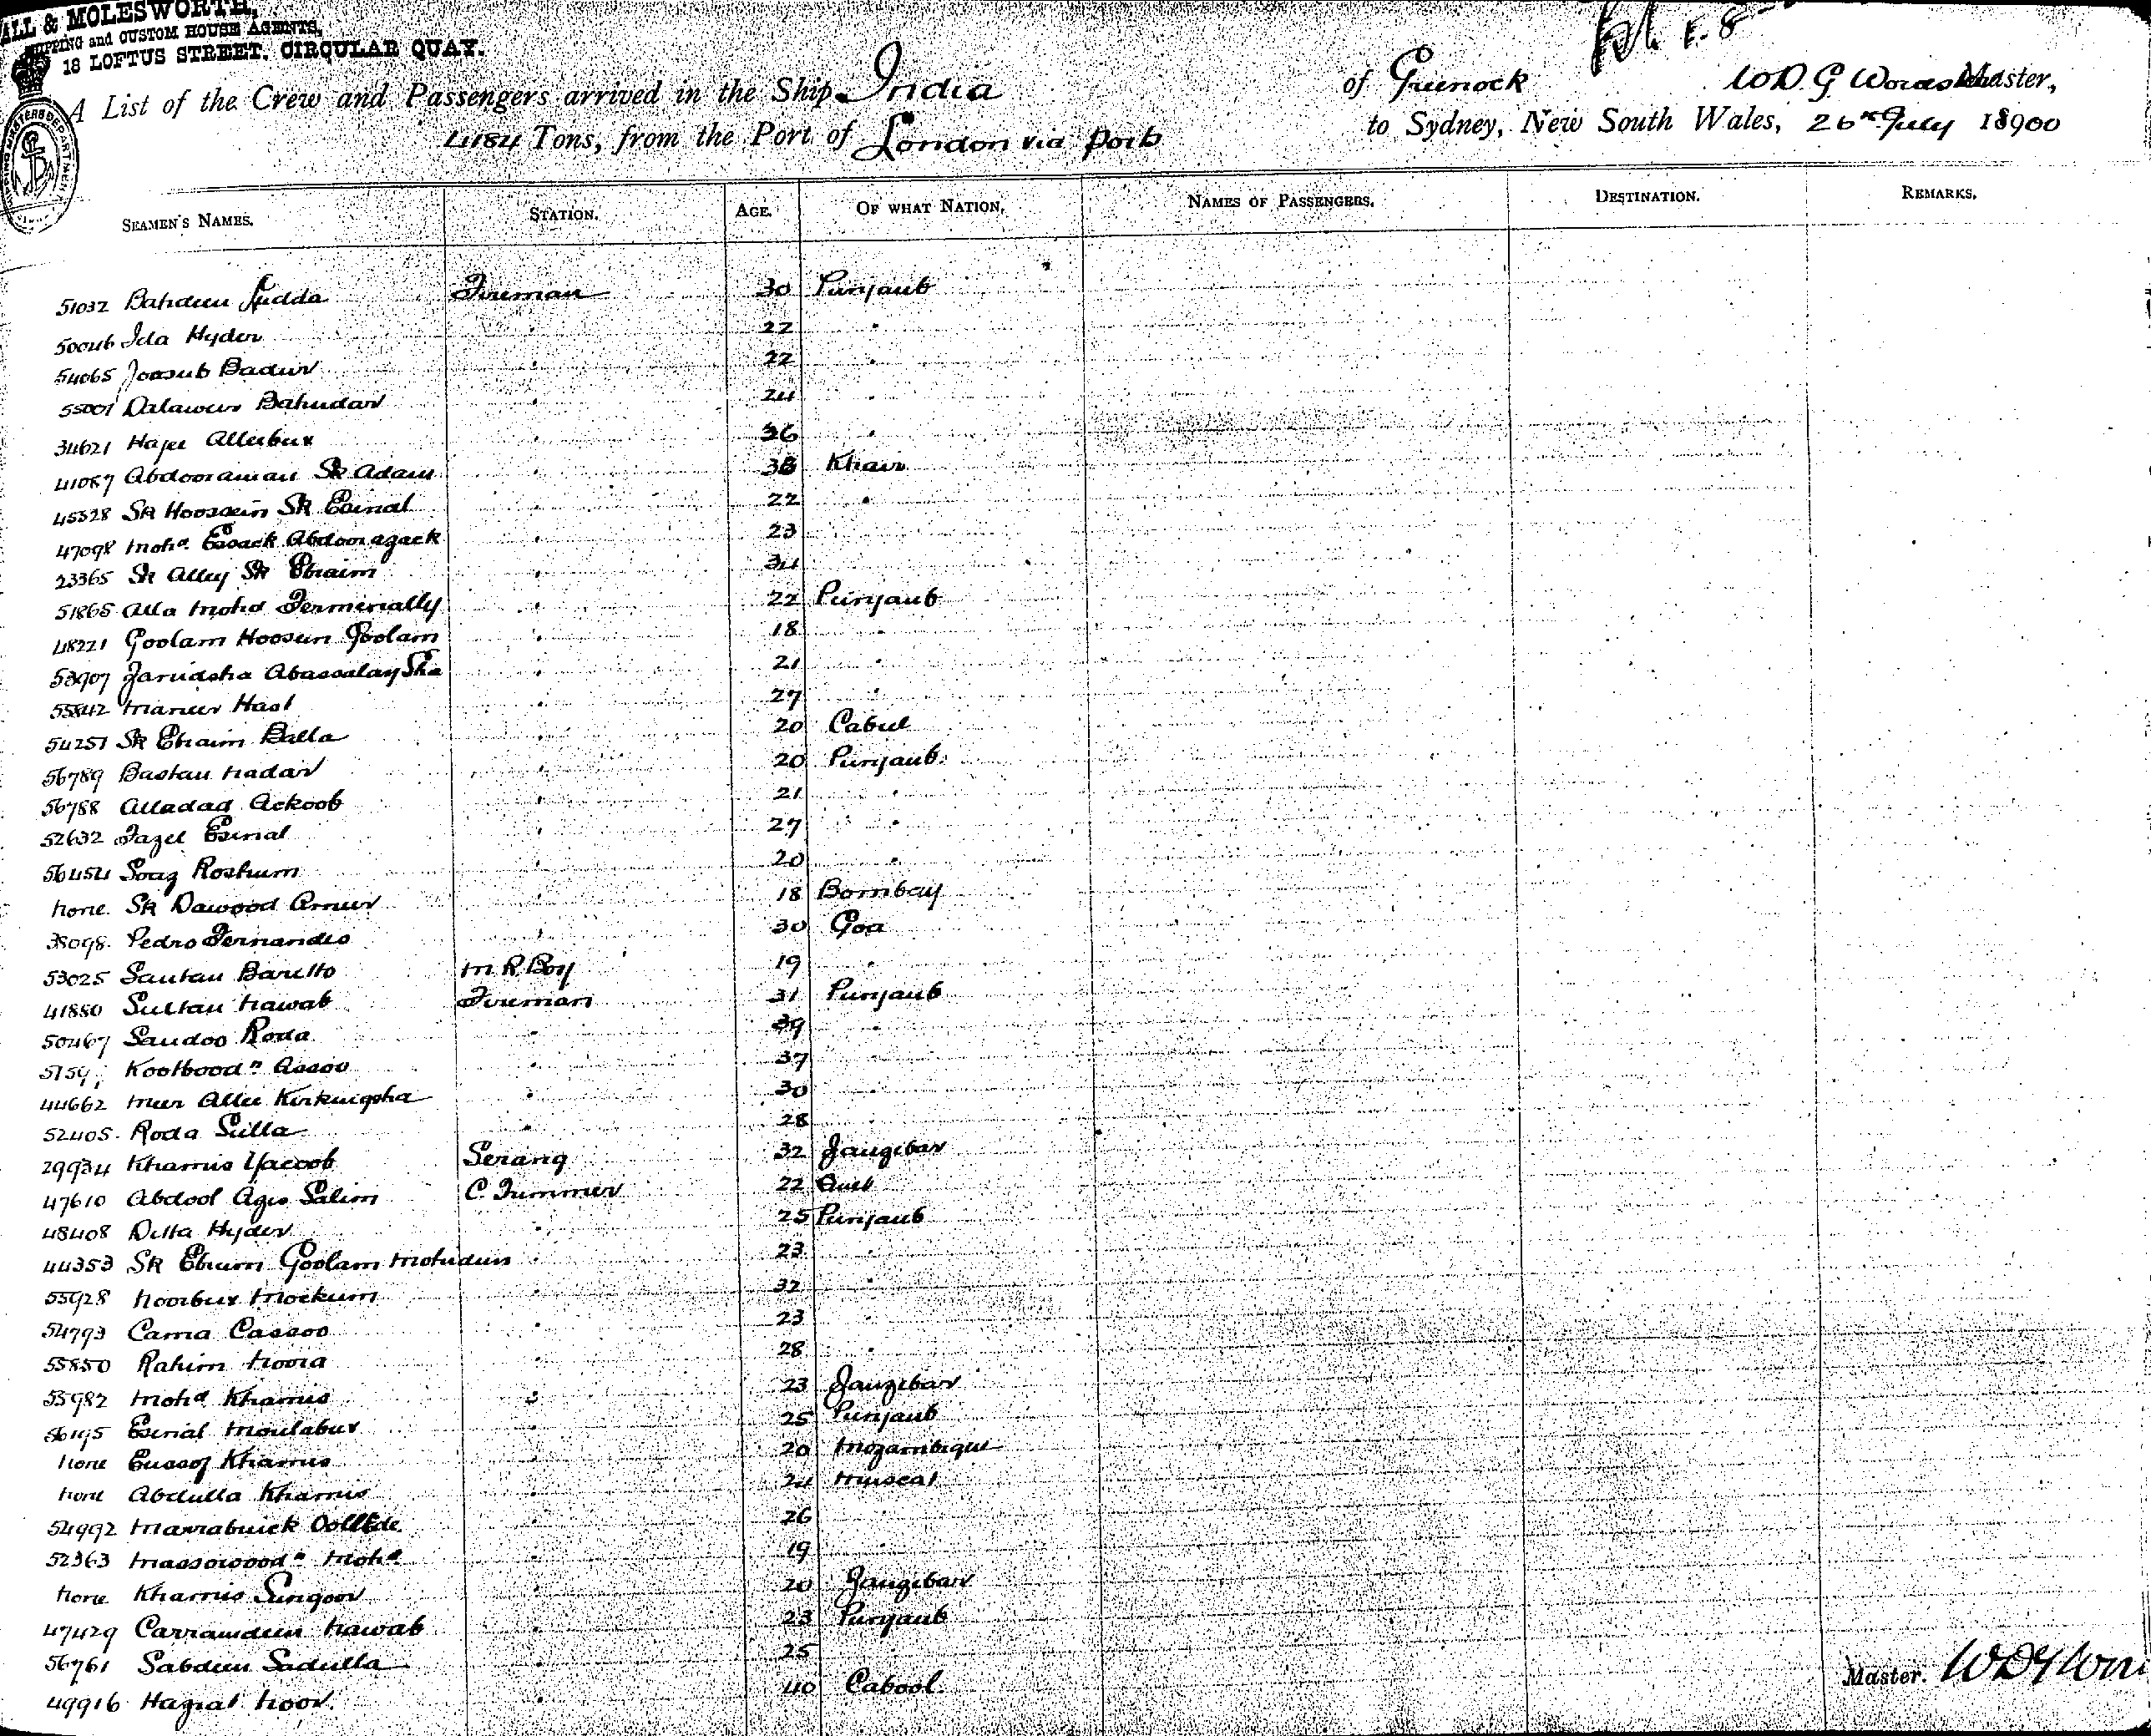 ALL & MOLESWORTH,
SHIPPING and CUSTOM HOUSE AGENTS,
18 LOFTUS STREET, CIRCULAR QUAY.
A List of the Crew and Passengers arrived in the Ship India of Greenock W D G Master,
4184 Tons, from the Port of London via ports to Sydney, New South Wales, 26th July 18900
SEAMEN'S NAMES. STATION. AGE. OF WHAT NATION. NAMES OF PASSENGERS. DESTINATION. REMARKS.
51032 Bahdeen Judda Fireman 30 Punjaub
50046 Ida Hyder " 22 "
54065 Joosub Badur " 22 "
55001 Dalawur Bahudar " 24 "
34621 Hajee Allerbux " 36 "
41087 Abdooraman Sk Adam " 38 Khair
45328 Sk Hoosaein Sk Esmal " 22 "
47098 Mohd Esack Abdoorazack " 23 "
23365 Sk Alley Sk Ebraim " 34
51865 Alla Mohd Jerminially " 22 Punjaub
48221 Goolam Hoosein Goolam " 18 "
53907 Jarudsha Abassalay Sha " 21 "
55842 Maneer Hast " 27 "
54251 Sk Ebraim Balla " 20 Cabul
56789 Bastau Nadar " 20 Punjaub
56788 Alladad Ackoob " 21 "
52632 Fazel Esmal " 27 "
56454 Soaz Roshum " 20 "
None Sk Dawood Ameer " 18 Bombay
38098 Pedro Fernandes " 30 Goa
53025 Santan Baretto M R Boy 19 "
41880 Sultan Nawab Fireman 31 Punjaub
50467 Sandoo Roda " 39 "
5159 Kootbood" Assoo " 37 "
44662 Meer Allee " 30 "
52405 Roda Sulla " 28 "
29934 Khamis Yacoob Serang 32 Zanzibar
47610 Abdool Azis Salim C Trimmer 22
48408 Ditta Hyder " 25 Punjaub
44353 Sk Ebram Goolam Mohudeen " 23 "
55928 Noorbux Mockum " 32 "
54793 Cama Cassoo " 23 "
55850 Rahim Noora " 28 "
55982 Mohd Khamis " 23 Zanzibar
56195 Esmal Moulabux " 25 Punjaub
None Eusoof Khamis " 20 Mozambique
None Abdulla Khamis " 24 Muscat
54992 Marrabuick " 26 "
52363 Massowood" Mohd " 19 "
None Khamis Sungoor " 20 Zanzibar
47429 Carramdeen Nawab " 23 Punjaub
56761 Sabdeen Sadulla " 25 "
49916 Hazrat Noor. " 40 Cabool.
Master.